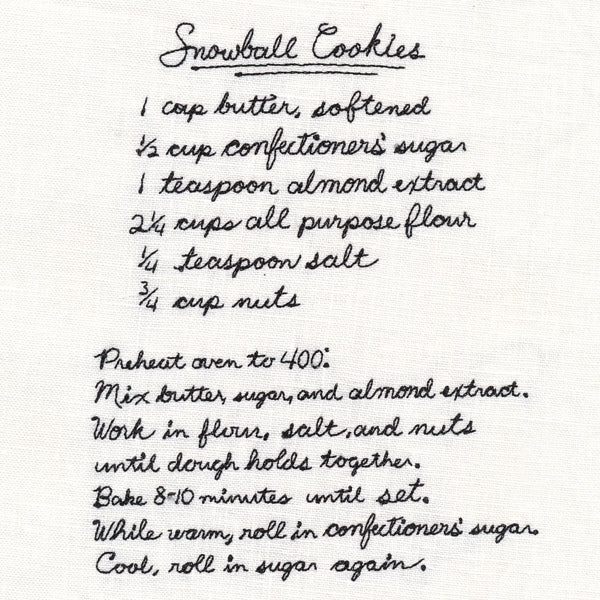 Snowball Cookies
1 cup butter, softened
½ cup confectioners' sugar
1 teaspoon almond extract
2¼ cups all purpose flour
¼ teaspoon salt
¾ cup nuts
Preheat oven to 400°.
Mix butter, sugar, and almond extract.
Work in flour, salt, and nuts
until dough holds together.
Bake 8-10 minutes until set.
While warm, roll in confectioners' sugar.
Cool, roll in sugar again.